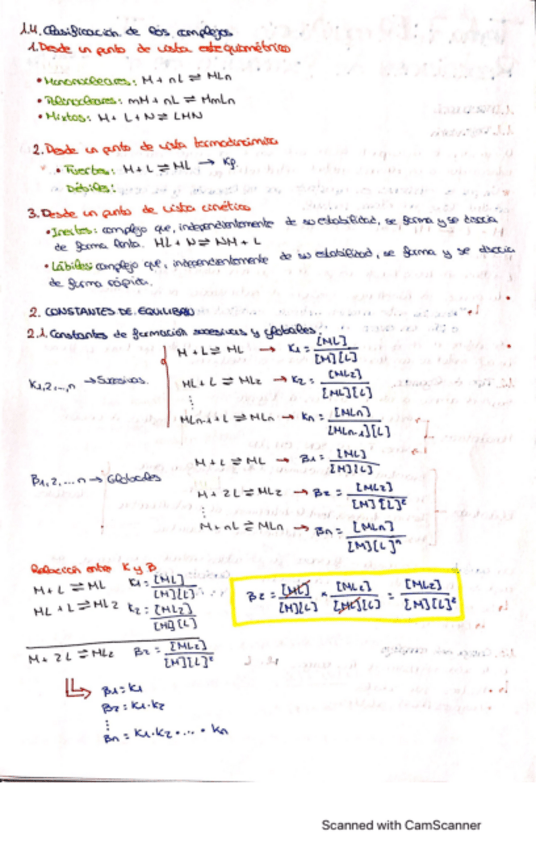 1.4. Clasificación de los complejos
1. Desde un punto de vista estequiométrico
• Mononucleares: M + nL ⇌ MLn
• Polinucleares: mM + nL ⇌ MmLn
• Mixtos: M + L + N ⇌ LMN
2. Desde un punto de vista termodinámico
• Fuertes: M + L ⇌ ML → Kf
Débiles:
3. Desde un punto de vista cinético
• Inertes: complejo que, independientemente de su estabilidad, se forma y se disocia
de forma lenta. ML + N ⇌ NM + L
• Lábiles: complejo que, independientemente de su estabilidad, se forma y se disocia
de forma rápida.
2. CONSTANTES DE EQUILIBRIO
2.1. Constantes de formación sucesivas y globales.
M + L ⇌ ML → K1 = [ML] / [M][L]
K1,2,...,n → Sucesivas
ML + L ⇌ ML2 → K2 = [ML2] / [ML][L]
⋮
MLn-1 + L ⇌ MLn → Kn = [MLn] / [MLn-1][L]
M + L ⇌ ML → B1 = [ML] / [M][L]
B1,2,...n → Globales
M + 2L ⇌ ML2 → B2 = [ML2] / [M][L]²
⋮
M + nL ⇌ MLn → Bn = [MLn] / [M][L]ⁿ
Relación entre K y B
M + L ⇌ ML K1 = [ML] / [M][L]
ML + L ⇌ ML2 K2 = [ML2] / [ML][L]
B2 = [ML] / [M][L] * [ML2] / [ML][L] = [ML2] / [M][L]²
M + 2L ⇌ ML2 B2 = [ML2] / [M][L]²
B1 = K1
B2 = K1·K2
⋮
Bn = K1·K2·...·Kn
Scanned with CamScanner